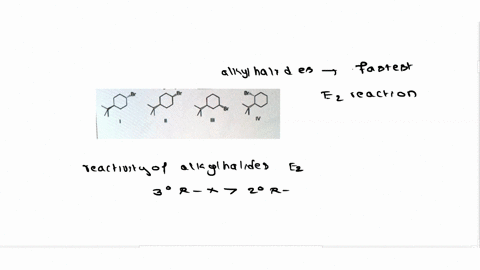 alkylhalides → fastest
E₂ reaction
Br Br Br Br
I II III IV
reactivity of alkylhalides E₂
3° R - X > 2° R -